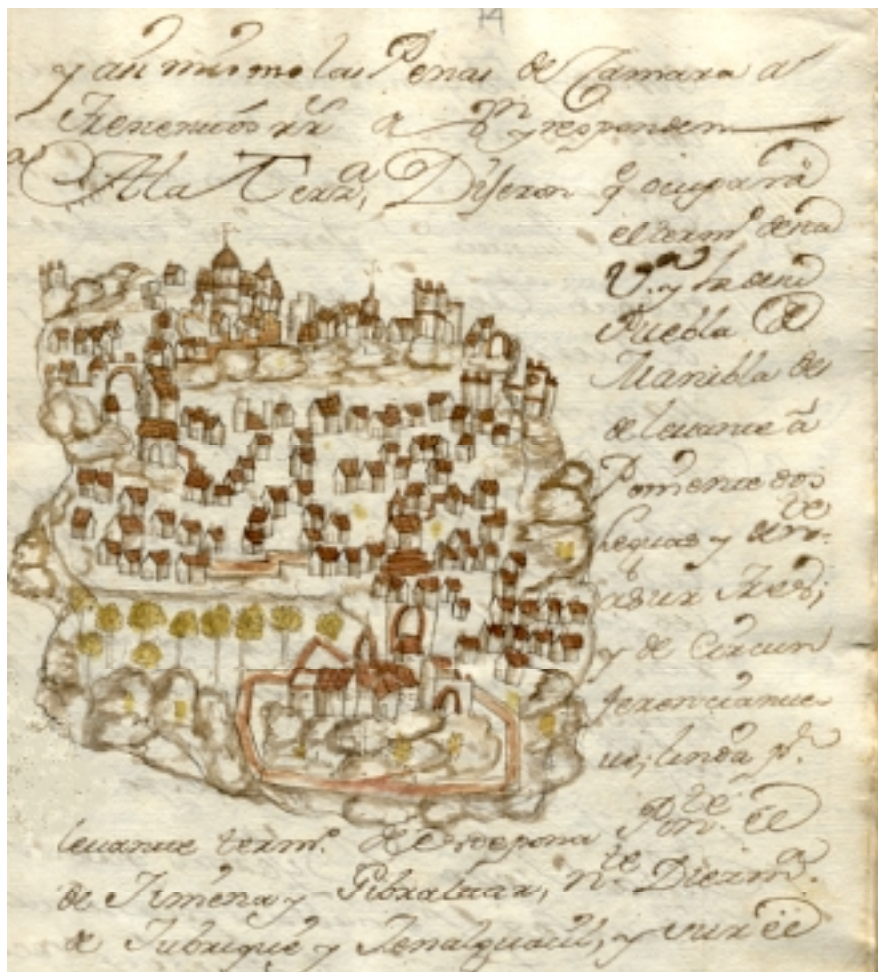 14
y asi mismo las Penas de Camara a
trenenios rr a qn y responden
A la Terza, Dijeron q ocupara
el termo. de sta
Va. y la de su
Puebla de
Manilba de
de levante a
Poniente dos
leguas y de no:
a sur tres;
y de circun
ferencia nue
ve; linda pr.
levante termo. de estepona Ponte. el
de Ximena y Gibraltar, nte. Dho term.
de Jubrique y Jenalguazil, y sur el